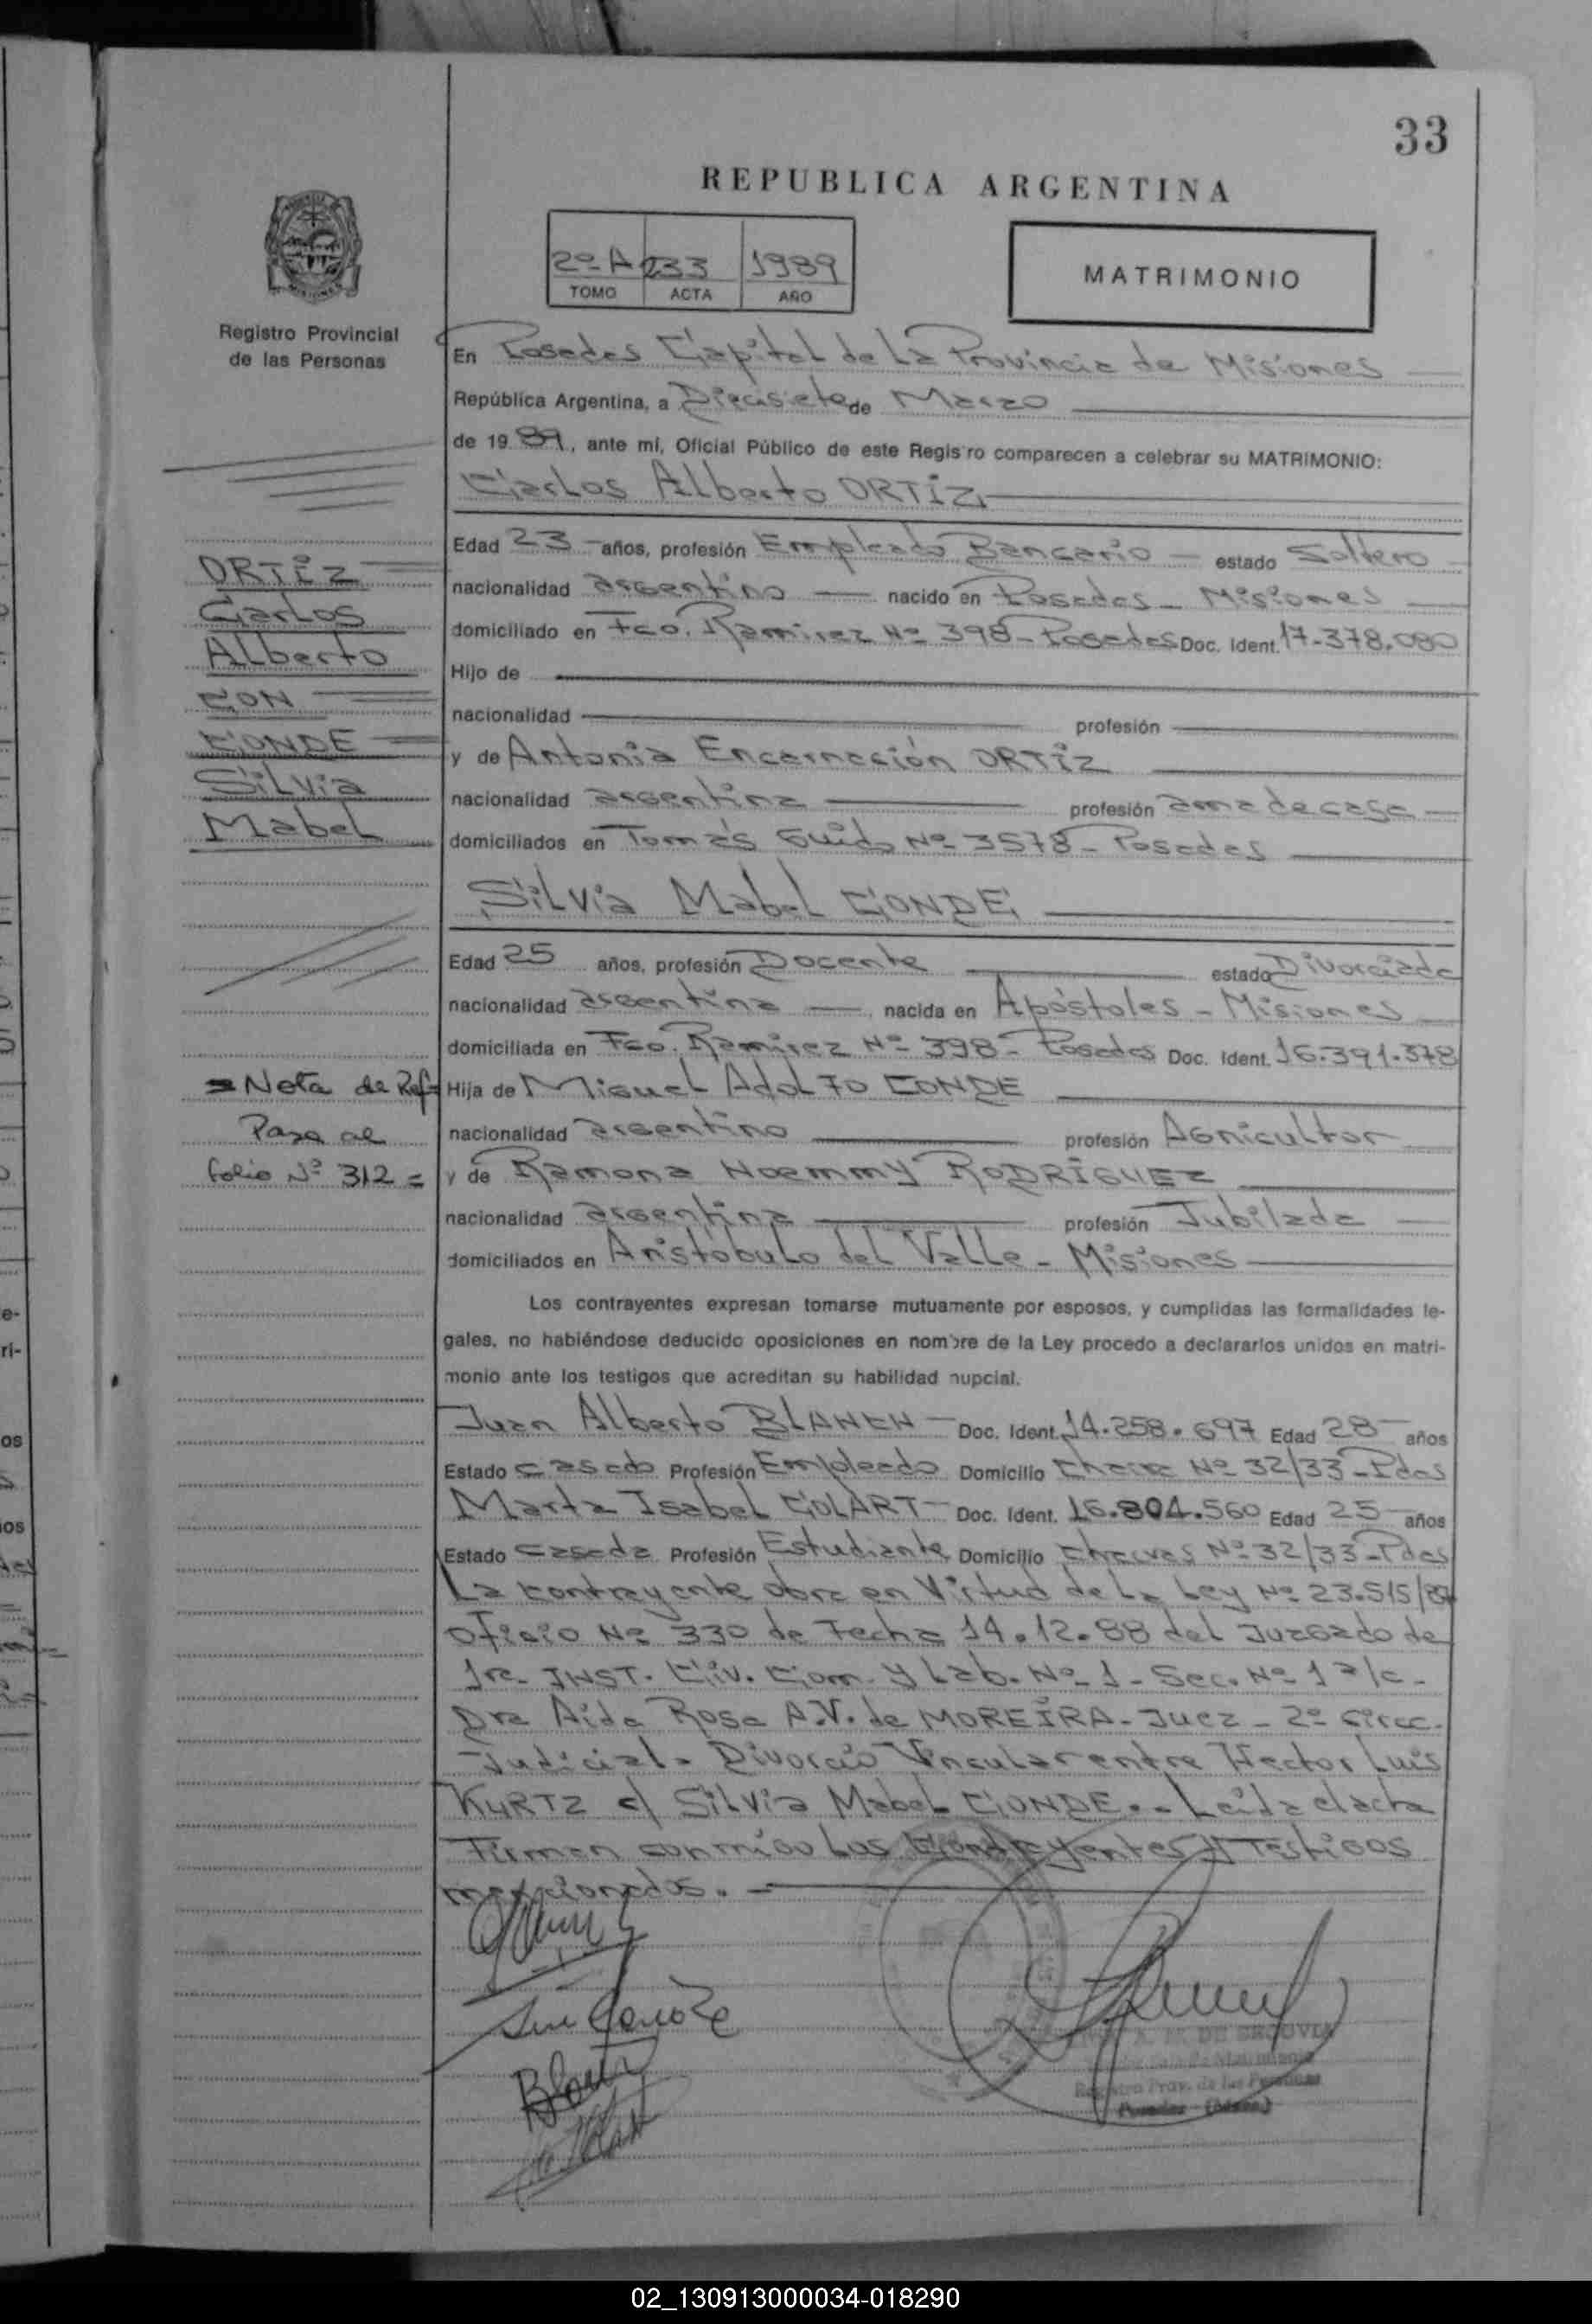 33
REPUBLICA ARGENTINA
2º-A 233 1989
TOMO ACTA AÑO
MATRIMONIO
Registro Provincial
de las Personas
En Posadas Capital de La Provincia de Misiones
República Argentina, a Diecisiete de Marzo
de 19 89, ante mí, Oficial Público de este Registro comparecen a celebrar su MATRIMONIO:
Carlos Alberto ORTÍZ
Edad 23 años, profesión Empleado Bancario estado Soltero
nacionalidad argentino nacido en Posadas - Misiones
domiciliado en Fco. Ramirez Nº 398 - Posadas Doc. Ident. 17.378.080
Hijo de
nacionalidad profesión
y de Antonia Encarnación ORTÍZ
nacionalidad argentina profesión ama de casa
domiciliados en Tomás Guido Nº 3578 - Posadas
Silvia Mabel CONDE
Edad 25 años, profesión Docente estado Divorciada
nacionalidad argentina nacida en Apóstoles - Misiones
domiciliada en Fco. Ramirez Nº 398 - Posadas Doc. Ident. 16.391.378
Hija de Miguel Adolfo CONDE
nacionalidad argentino profesión Agricultor
y de Ramona Noemmy RODRÍGUEZ
nacionalidad argentina profesión Jubilada
domiciliados en Aristóbulo del Valle - Misiones
Los contrayentes expresan tomarse mutuamente por esposos, y cumplidas las formalidades le-
gales, no habiéndose deducido oposiciones en nombre de la Ley procedo a declararlos unidos en matri-
monio ante los testigos que acreditan su habilidad nupcial.
Juan Alberto BLANCH Doc. Ident. 14.258.697 Edad 28 años
Estado casado Profesión Empleado Domicilio Chacra Nº 32/33 - Pdas
Marta Isabel GOLART Doc. Ident. 16.804.560 Edad 25 años
Estado casada Profesión Estudiante Domicilio Chacras Nº 32/33 - Pdas
La contrayente obra en Virtud de La Ley Nº 23.515/87
Oficio Nº 330 de Fecha 14.12.88 del Juzgado de
1ra. INST. Civ. Com. y Lab. Nº 1 - Sec. Nº 1 a/c.
Dra Aida Rosa A.V. de MOREÍRA - Juez - 2º Circc.
Judicial - Divorcio Vincular entre Hector Luis
KURTZ c/ Silvia Mabel CONDE.- Leída el acta
Firman conmigo Los Contrayentes y Testigos
mencionados.
ORTÍZ
Carlos
Alberto
CON
CONDE
Silvia
Mabel
= Nota de Ref=
Pasa al
folio Nº 312 =
DE SEGOVIA
Registro Prov. de las Personas
Posadas - (Mnes)
02_130913000034-018290